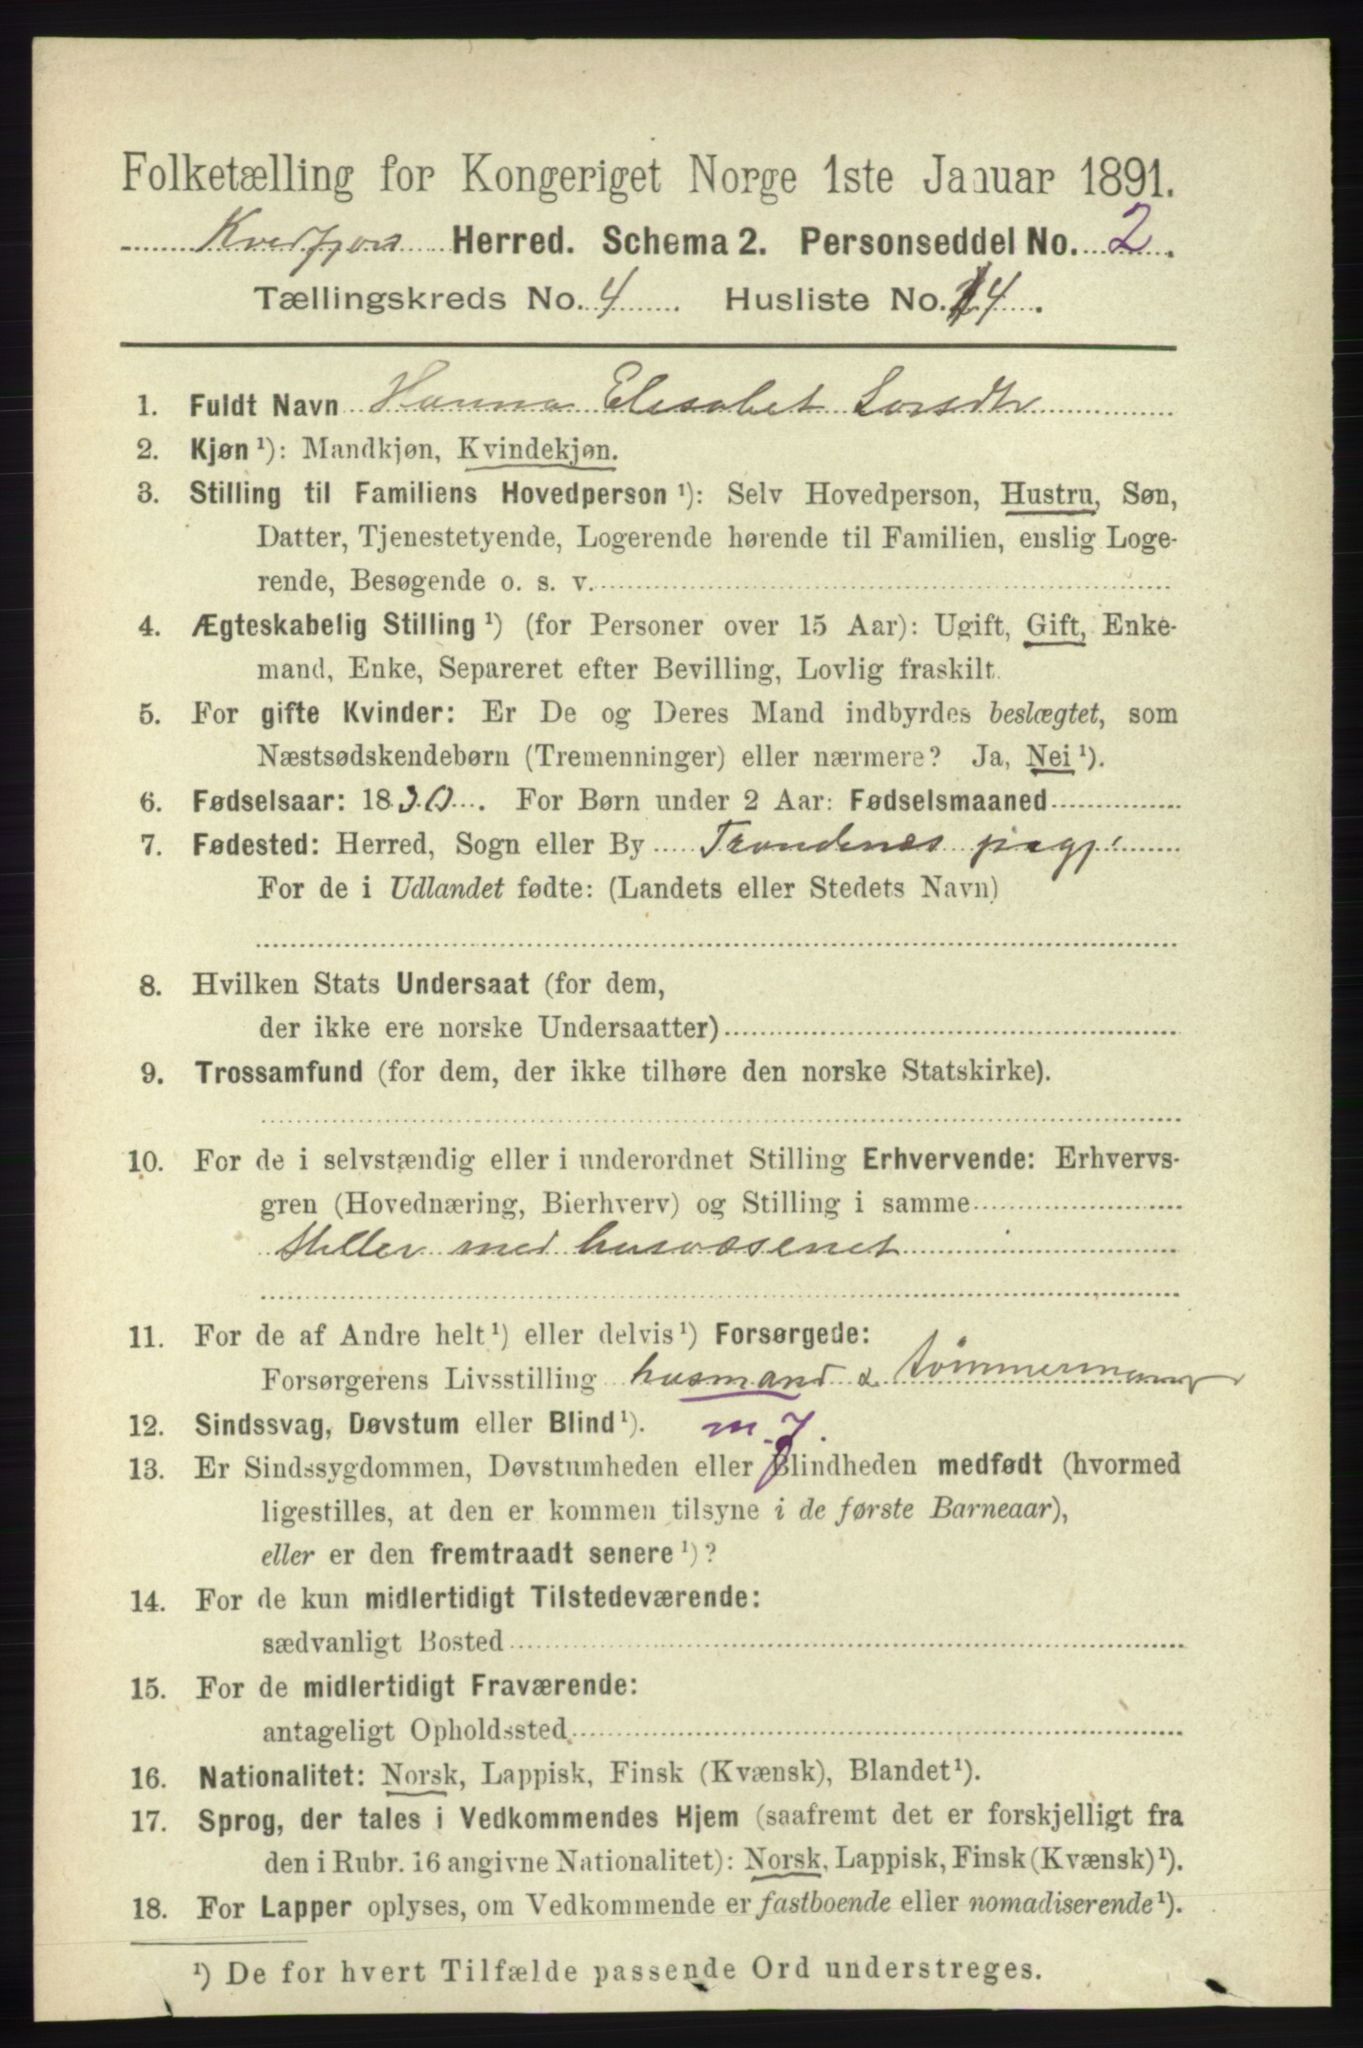 Folketælling for Kongeriget Norge 1ste Januar 1891.
Kvedfjors Herred. Schema 2. Personseddel No. 2.
Tællingskreds No. 4 Husliste No. 14.
1. Fuldt Navn Hanna Elisabet Larsdtr
2. Kjøn ¹): Mandkjøn, Kvindekjøn.
3. Stilling til Familiens Hovedperson ¹): Selv Hovedperson, Hustru, Søn,
Datter, Tjenestetyende, Logerende hørende til Familien, enslig Loge-
rende, Besøgende o. s. v.
4. Ægteskabelig Stilling ¹) (for Personer over 15 Aar): Ugift, Gift, Enke-
mand, Enke, Separeret efter Bevilling, Lovlig fraskilt.
5. For gifte Kvinder: Er De og Deres Mand indbyrdes beslægtet, som
Næstsødskendebørn (Tremenninger) eller nærmere? Ja, Nei ¹).
6. Fødselsaar: 1830. For Børn under 2 Aar: Fødselsmaaned
7. Fødested: Herred, Sogn eller By Trondenes prægj.
For de i Udlandet fødte: (Landets eller Stedets Navn)
8. Hvilken Stats Undersaat (for dem,
der ikke ere norske Undersaatter)
9. Trossamfund (for dem, der ikke tilhøre den norske Statskirke).
10. For de i selvstændig eller i underordnet Stilling Erhvervende: Erhvervs-
gren (Hovednæring, Bierhverv) og Stilling i samme
Steller med husvæsenet
11. For de af Andre helt ¹) eller delvis ¹) Forsørgede:
Forsørgerens Livsstilling husmand & tømmermand
12. Sindssvag, Døvstum eller Blind ¹). m. J.
13. Er Sindssygdommen, Døvstumheden eller Blindheden medfødt (hvormed
ligestilles, at den er kommen tilsyne i de første Barneaar),
eller er den fremtraadt senere ¹)?
14. For de kun midlertidigt Tilstedeværende:
sædvanligt Bosted
15. For de midlertidigt Fraværende:
antageligt Opholdssted
16. Nationalitet: Norsk, Lappisk, Finsk (Kvænsk), Blandet ¹).
17. Sprog, der tales i Vedkommendes Hjem (saafremt det er forskjelligt fra
den i Rubr. 16 angivne Nationalitet): Norsk, Lappisk, Finsk (Kvænsk) ¹).
18. For Lapper oplyses, om Vedkommende er fastboende eller nomadiserende ¹).
¹) De for hvert Tilfælde passende Ord understreges.